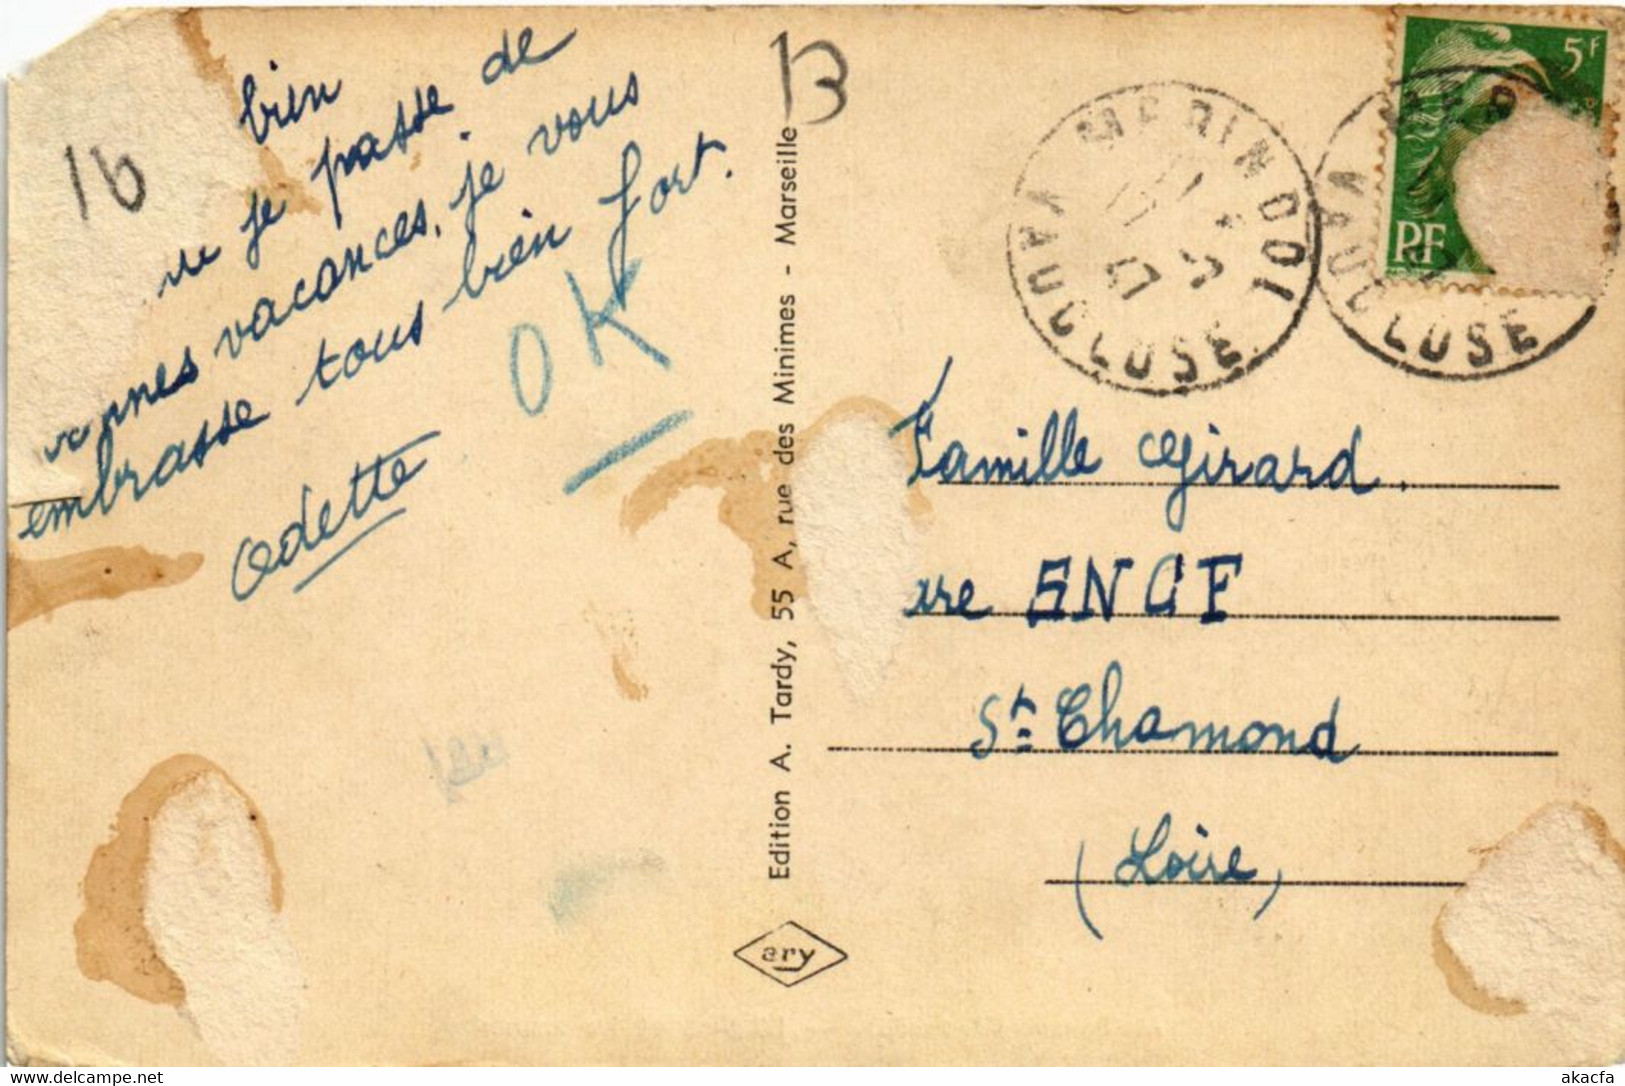 16
bien
je passe de
vacances. je vous
embrasse tous bien fort.
Odette
OK
13
Edition A. Tardy, 55 A, rue des Minimes - Marseille
ary
MERINDOL
VAUCLUSE
47
5F
RF
VAUCLUSE
Famille Girard.
SNCF
St Chamond
(Loire)
akacfa